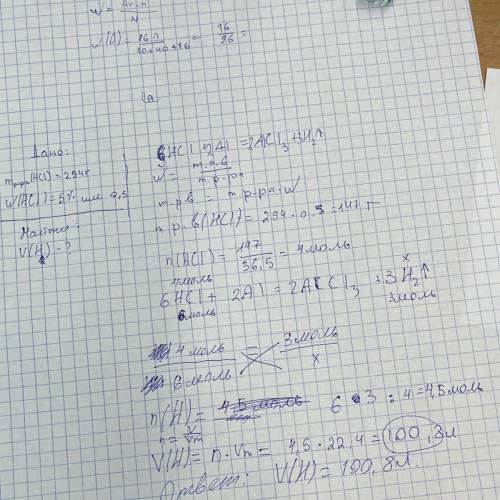 w =
w(O) = = 16/96 =
Дано:
m р-ра (HCl) = 294г
w(HCl) = 5% или 0,5
Найти:
V(H₂) - ?
6HCl + 2Al = 2AlCl₃ + 3H₂↑
w = m.р.в / m.р-ра
m.р.в = m.р-ра · w
m.р.в (HCl) = 294 · 0,5 = 147 г
n(HCl) = 147/36,5 = 4 моль
4моль x
6HCl + 2Al = 2AlCl₃ + 3H₂↑
6моль 3моль
4 моль = 3 моль
6 моль x
n(H) = 4,5 моль 6 · 3 : 4 = 4,5 моль
n = V/Vm
V(H) = n · Vm = 4,5 · 22,4 = 100,8л
Ответ: V(H) = 100,8л.